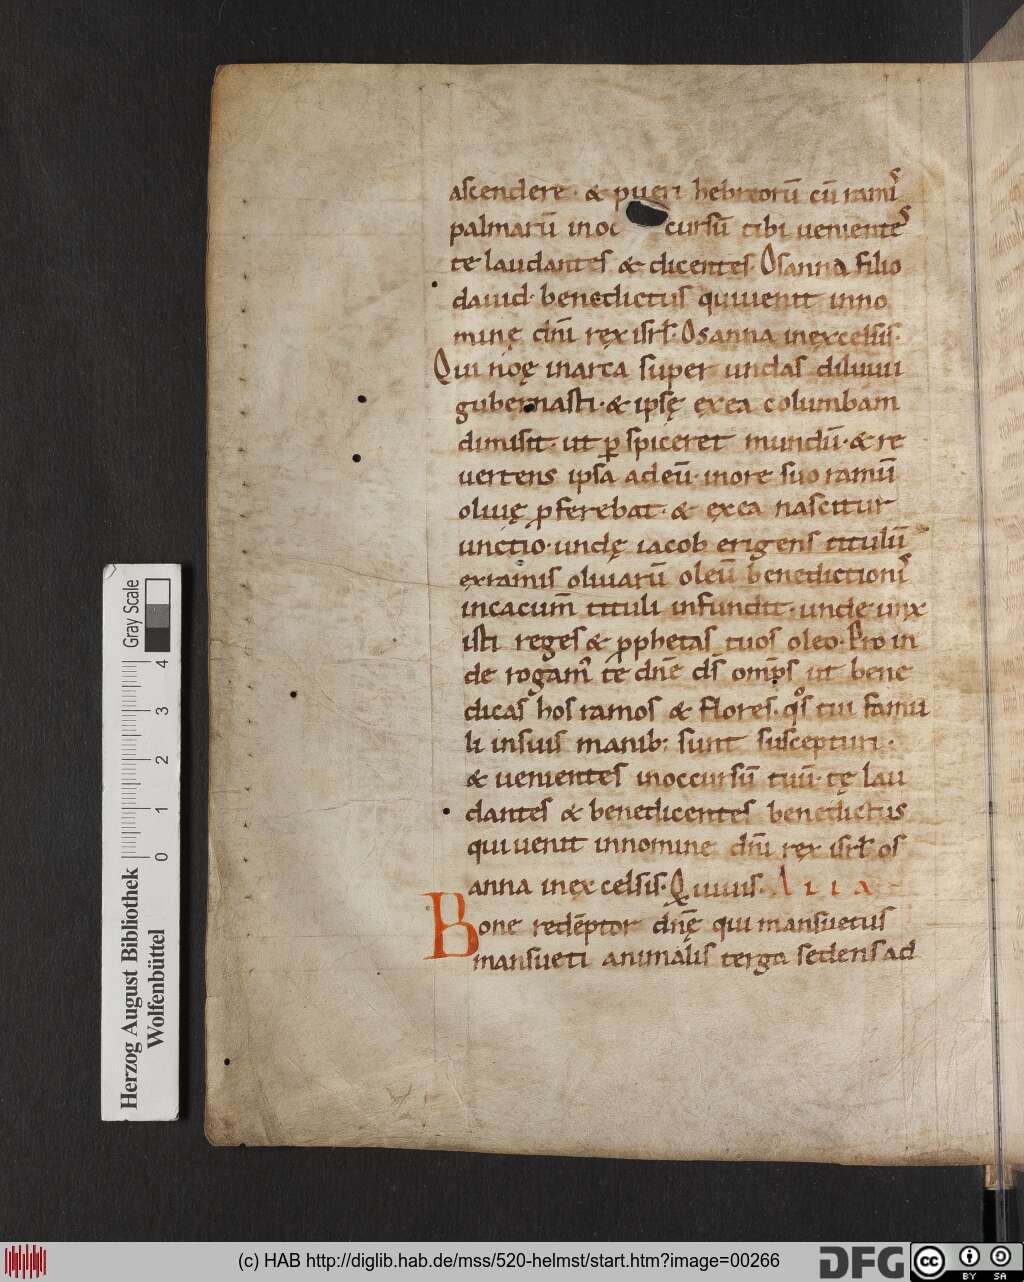 ascendere · & pueri hebreorū cū ramiˢ
palmarū in oc cursū tibi uenienteˢ
te laudantes & dicentes· Osanna filio
dauid· benedictus qui uenit inno
minę dn̄i ręx isrl̄· Osanna inęxcelsis·
Qui noę inarca super undas diluuii
gubernasti·& ipsę ęxea columbam
dimisit· ut ꝑspiceret mundū·& re
uertens ipsa adeū·inore suo ramū
oliuę ꝓferebat· & ęxea nascitur
unctio·undę iacob erigens titulū
ęxramis oliuarū oleū benedictioniˢ
incacum̄ tituli infundit·unde unx
isti reges & ꝓphetas tuos oleo· Pro in
de rogam᾽ te dn̄e ds̄ omp̄s ut bene
dicas hos ramos & flores· qͦs tui famu
li insuis manib; sunt suscepturi·
& uenientes inoccursū tuū· tę lau
dantes & benedicentes benedictus
qui uenit innomine dn̄i ręx isrl̄ os
anna inęxcelsis· Qui uiuis· Alia
Bone redēptor dn̄ę qui mansuetus
mansueti animalis terga sedens ad
Herzog August Bibliothek
Wolfenbüttel
Gray Scale
0 1 2 3 4
(c) HAB http://diglib.hab.de/mss/520-helmst/start.htm?image=00266
DFG
cc BY SA